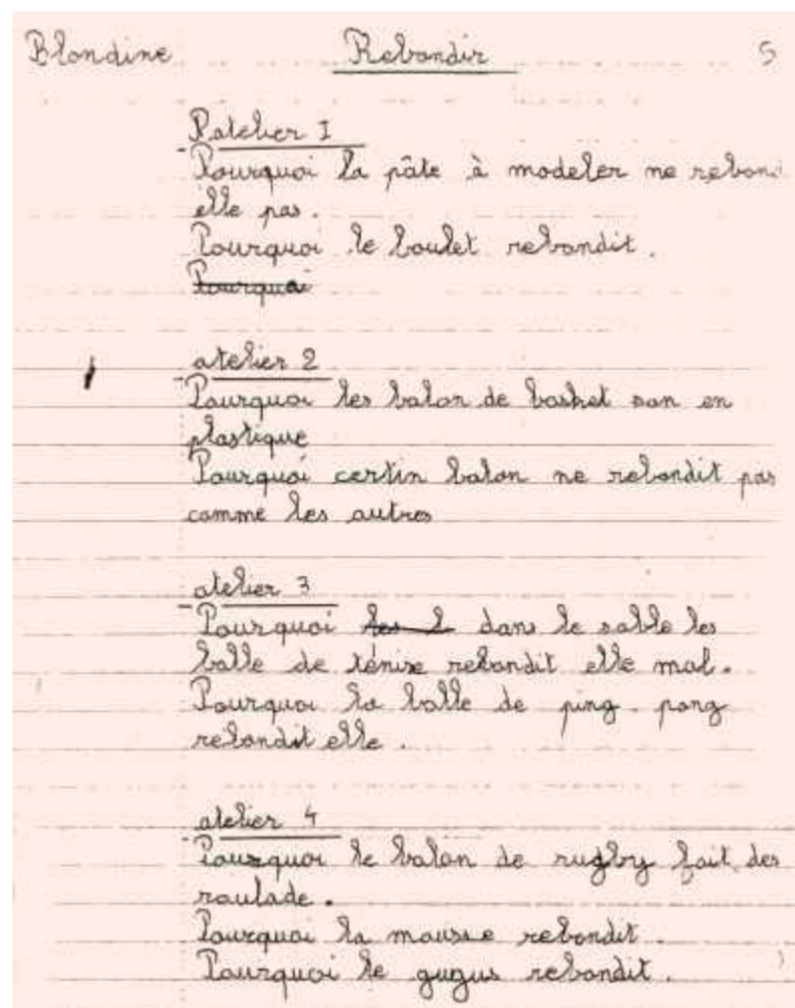 Blondine Rebondir 5
Patelier I
Pourquoi la pâte à modeler ne rebond
elle pas.
Pourquoi le boulet rebondit.
Pourquoi
atelier 2
Pourquoi les balon de basket son en
plastique
Pourquoi certin balon ne rebondit pas
comme les autres
atelier 3
Pourquoi les b dans le sable les
balle de ténise rebondit elle mal.
Pourquoi la balle de ping-pong
rebondit elle.
atelier 4
Pourquoi le balon de rugby fait des
roulade.
Pourquoi la mousse rebondit.
Pourquoi le gugus rebondit.